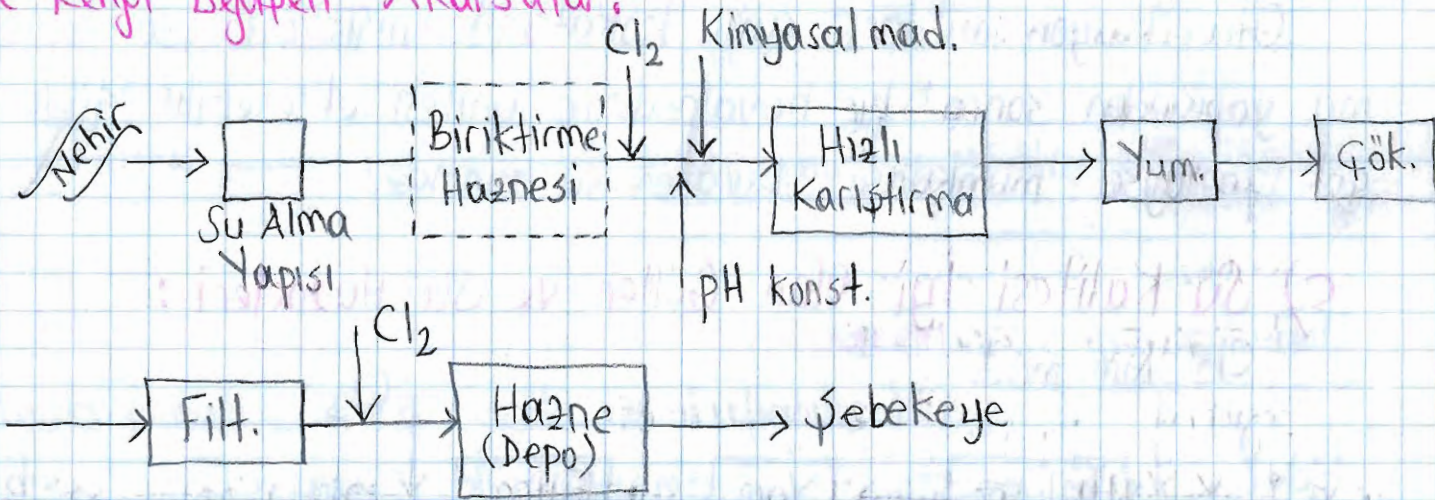 Akarsular:
Cl₂ Kimyasal mad.
Nehir
Su Alma
Yapısı
Biriktirme
Haznesi
Hızlı
Karıştırma
Yum.
Çök.
pH konst.
Cl₂
Filt.
Hazne
(Depo)
Şebekeye
c) Su Kalitesi İyi